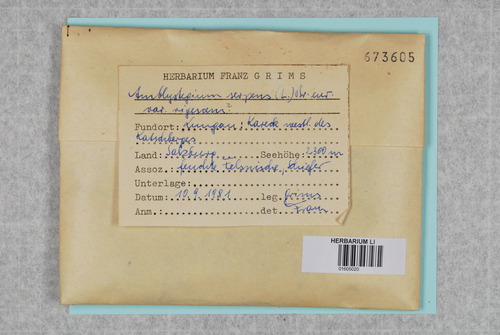 673605
HERBARIUM FRANZ GRIMS
Amblystegium serpens (L.) Br. eur.
var. rigescens?
Fundort: Lungau; Kareck westl. des
Katschberges
Land: Salzburg Seehöhe 2300 m
Assoz. feuchte
Unterlage:
Datum: 10.9.1981 leg. Grims
Anm.: det. Franz
HERBARIUM LI
01605020